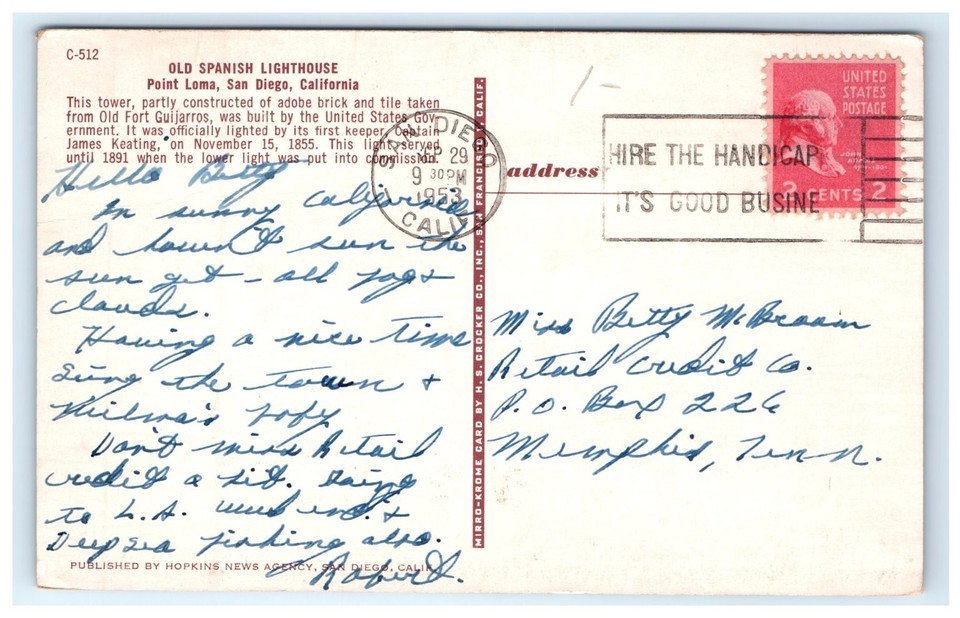 C-512
OLD SPANISH LIGHTHOUSE
Point Loma, San Diego, California
This tower, partly constructed of adobe brick and tile taken
from Old Fort Guijarros, was built by the United States Gov-
ernment. It was officially lighted by its first keeper, Captain
James Keating, on November 15, 1855. This light served
until 1891 when the lower light was put into commission.
Hello Betty
In sunny California
and haven't seen the
sun yet - all fogs
clouds.
Having a nice time
Seing the town +
Don't miss Retail
credit a bit. Going
to L.A. week end. +
Deep sea fishing also.
Robert.
PUBLISHED BY HOPKINS NEWS AGENCY, SAN DIEGO, CALIF.
MIRRO-KROME CARD BY H. S. CROCKER CO., INC., SAN FRANCISCO, CALIF.
SAN DIEGO
SEP 29
9 30 PM
1953
CALIF.
address
HIRE THE HANDICAP
IT'S GOOD BUSINE
UNITED
STATES
POSTAGE
JOHN
2 CENTS 2
Miss Betty McBroom
Retail Credit Co.
P.O. Box 226
Memphis, Tenn.